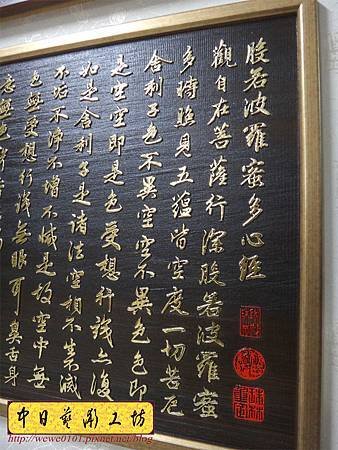 般若波羅蜜多心經
觀自在菩薩行深般若波羅蜜
多時照見五蘊皆空度一切苦厄
舍利子色不異空空不異色色即
是空空即是色受想行識亦復
如是舍利子是諸法空相不生不滅
不垢不淨不增不減是故空中無
色無受想行識無眼耳鼻舌身
意無色聲香
中日藝彫工坊
http://wewe0101.pixnet.net/blog